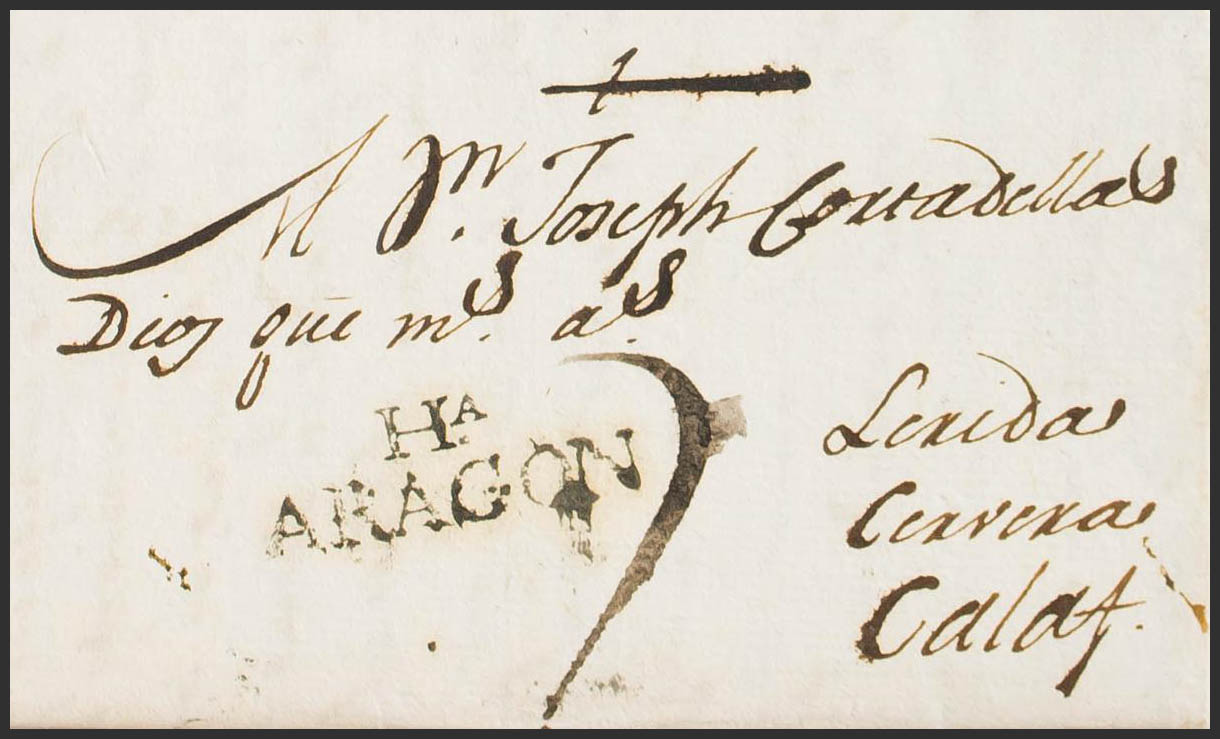 A Dn. Joseph Cortadellas
Dios gūe ms. as.
HA
ARAGON
7
Lerida
Cervera
Calaf.